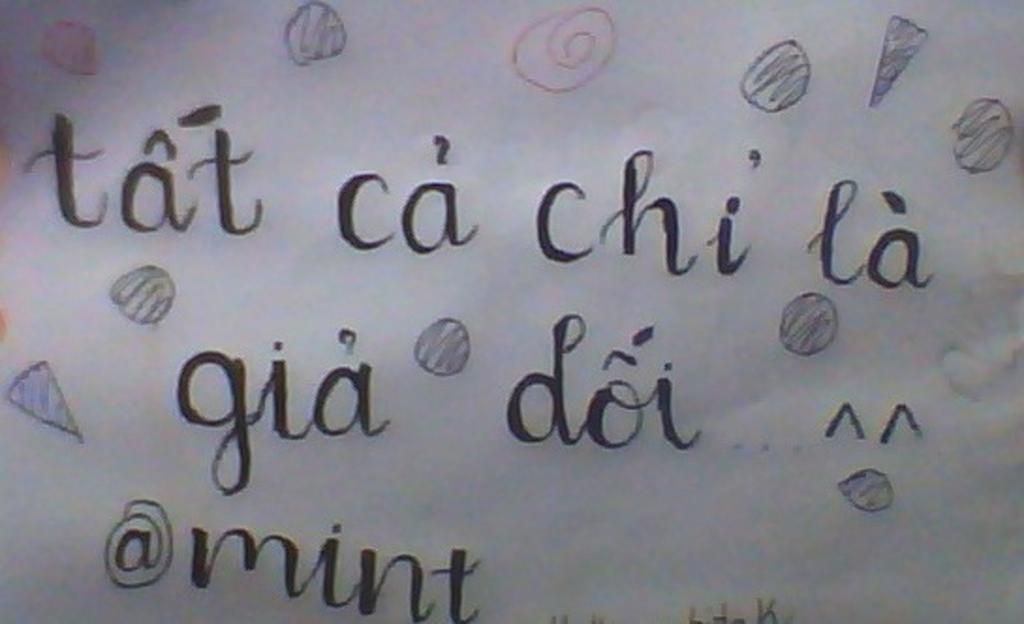 tất cả chỉ là
giả dối.... ^^
@mint